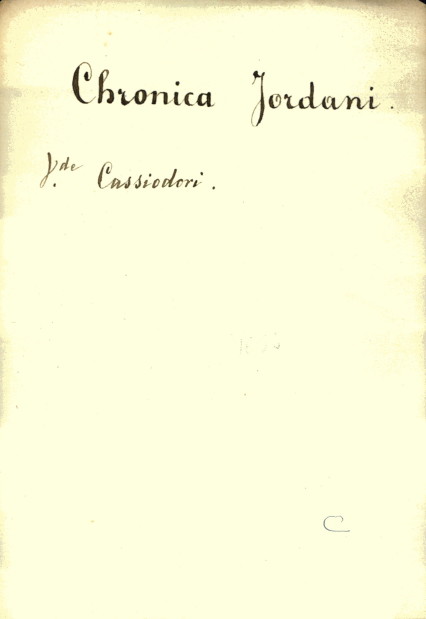 Chronica Jordani.
V.de Cassiodori.
C